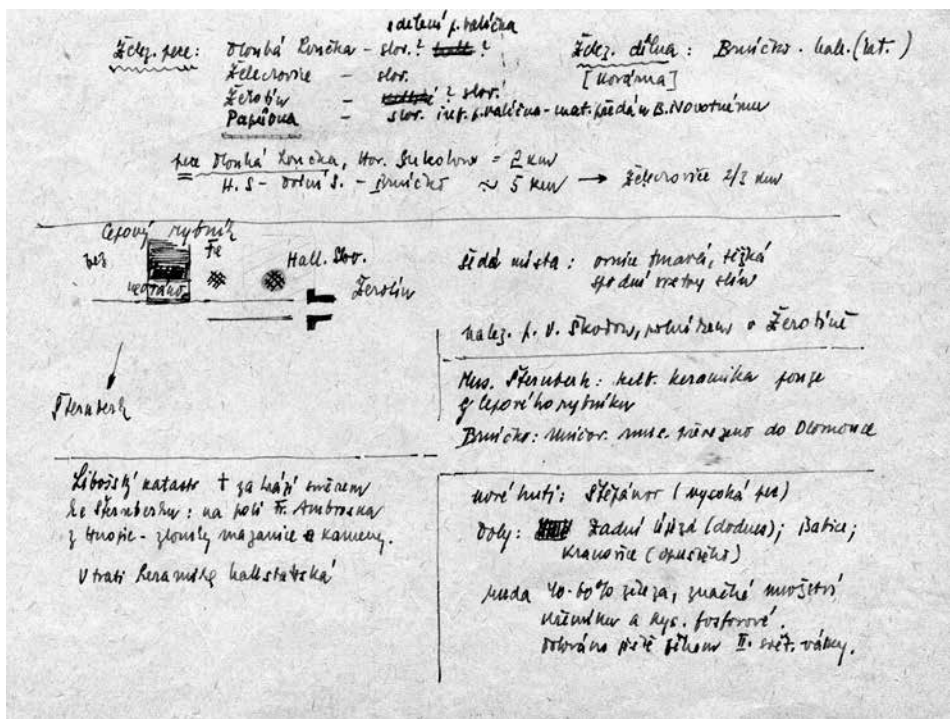 sdělení p. Valíčka
Želez. pece: Dlouhá Loučka – slov.? ?
Želechovice – slov.
Žerotín – ? slov.
Papůvka – slov. inf. p. Valíčka – mat. předán B. Novotnému
Želez. dílna: Brníčko. hall. (lat. )
[kovárna]
pece Dlouhá Loučka, Hor. Sukolom = 2 km
H. S – Dolní S. – Brníčko ≈ 5 km → Želechovice 2/3 km
Cepový rybník
Fe
Hall. Slov.
Žerotín
Šternberk
šedá místa: ornice tmavá, těžká
spodní vrstvy slín
nalez. p. V. Škodou, v Žerotíně
Mus. Šternberk: kelt. keramika pouze
z Cepového rybníku
Brníčko: Uničov. mus. převezeno do Olomouce
Libošský katastr † za hrází směrem
ke Šternberku: na poli Fr. Ambroska
z Hnojic – zlomky mazanice kameny.
V trati keramika hallstatská
nové huti: Štěpánov (vysoká pec)
Doly: Zadní Újezd (dodnes); Babice;
Krakořice (opuštěno)
ruda 40-60% železa, značné množství
křemíku a kys. fosforové.
Dolováno ještě během II. svět. války.